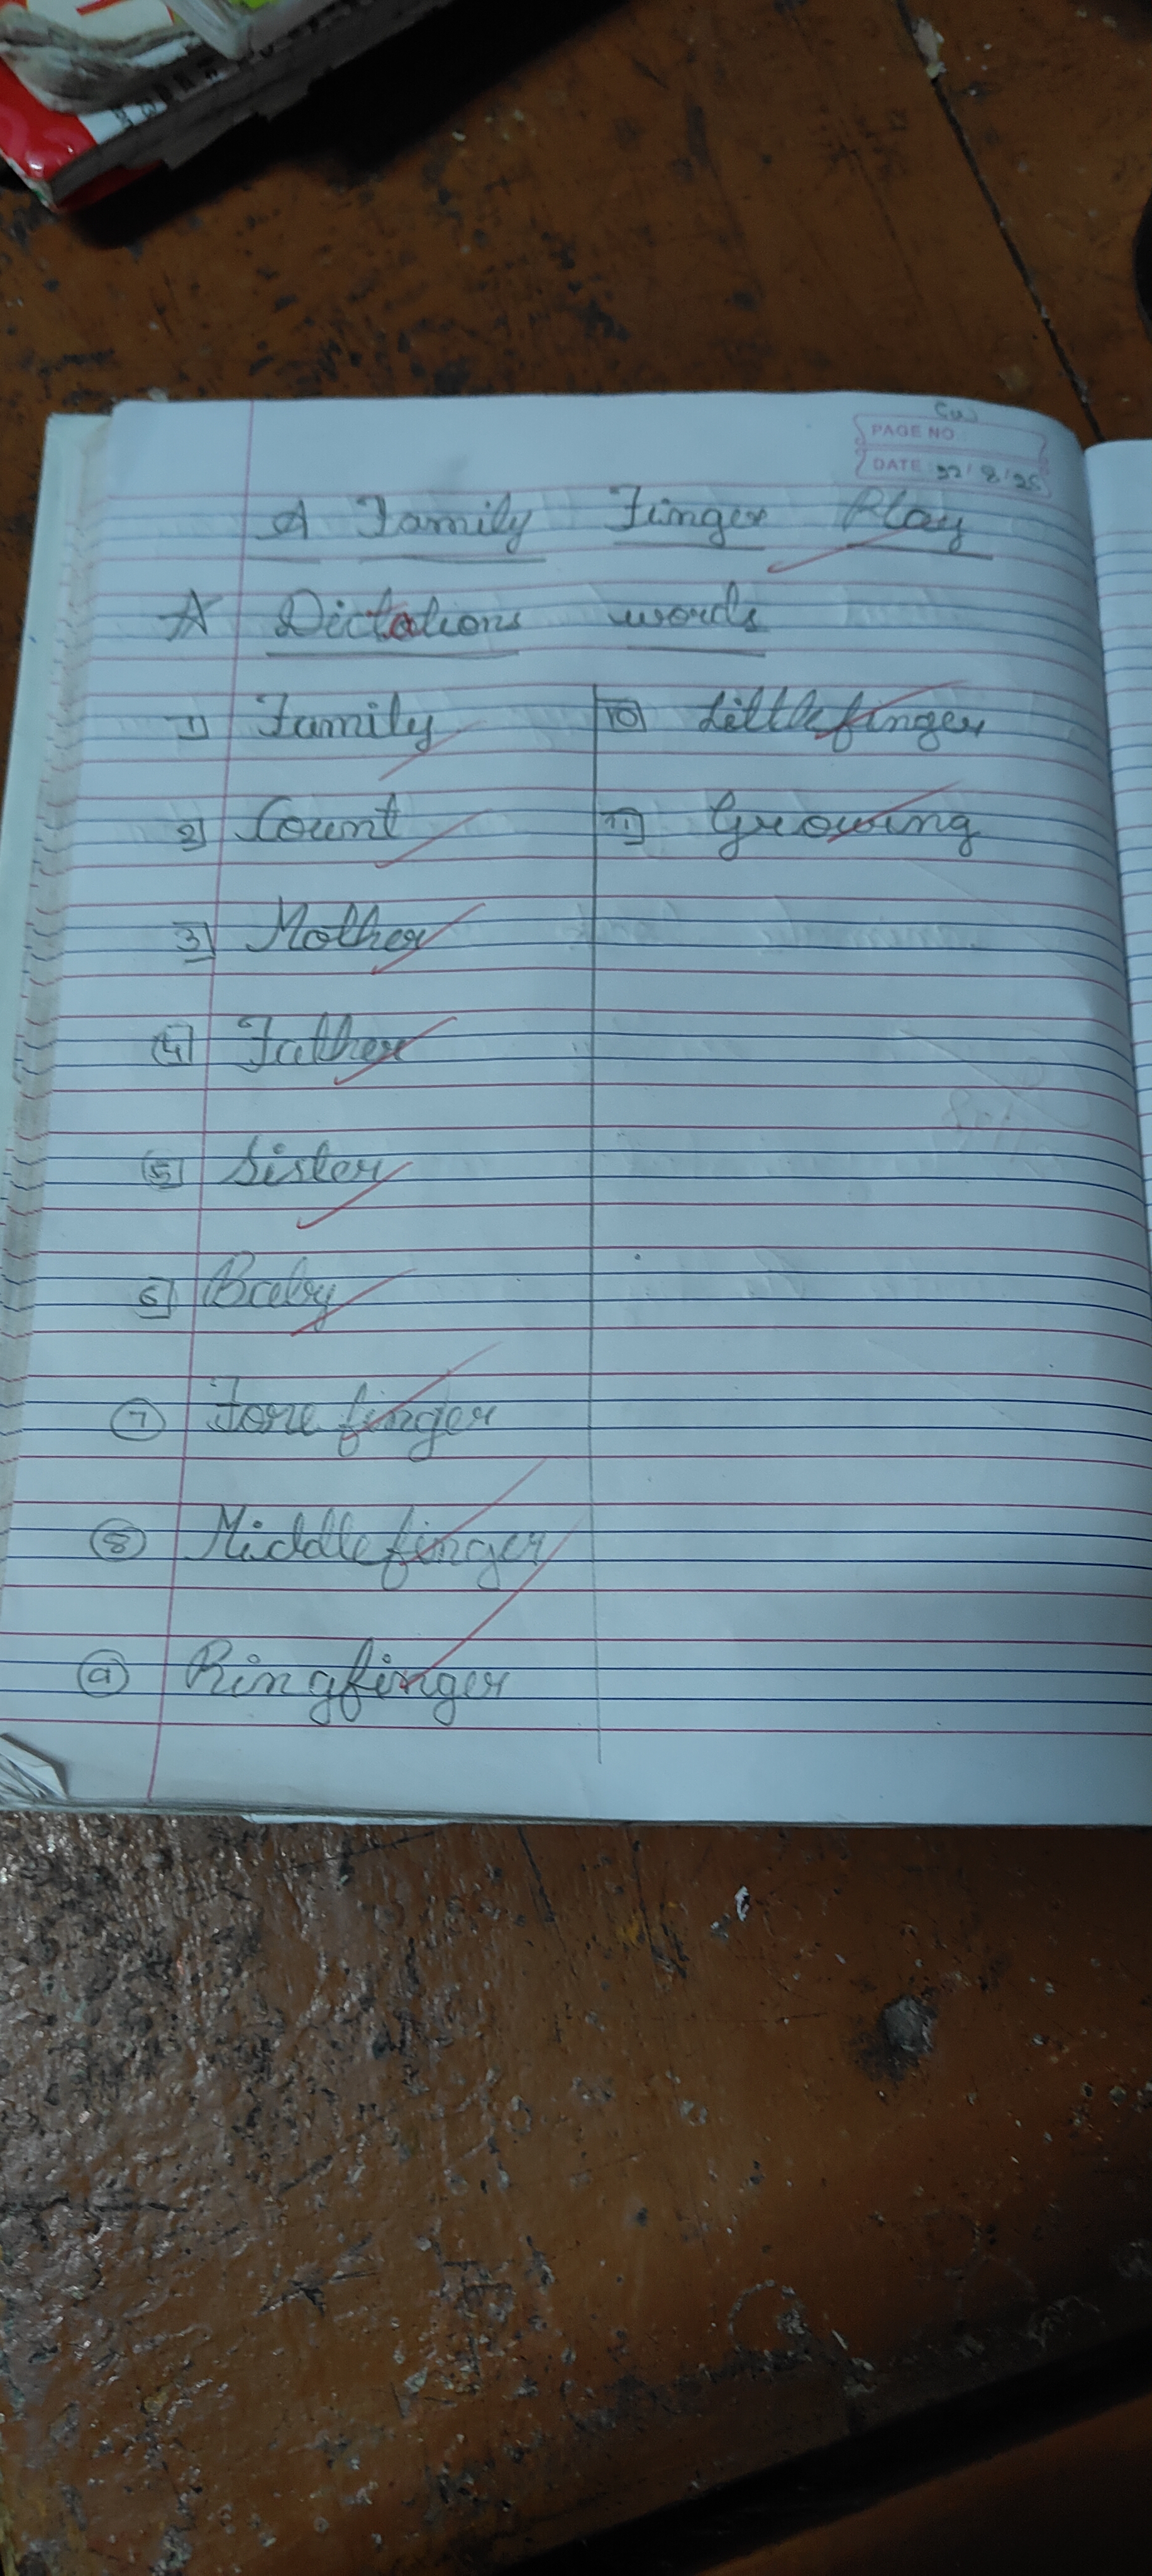 CW
PAGE NO.
DATE: 22/8/25
A Family Finger Play
A Dictations words
1) Family
2) Count
3) Mother
4) Father
5) Sister
6) Baby
7 Fore finger
8 Middlefinger
9 Ringfinger
10) Littlefinger
11) Growing